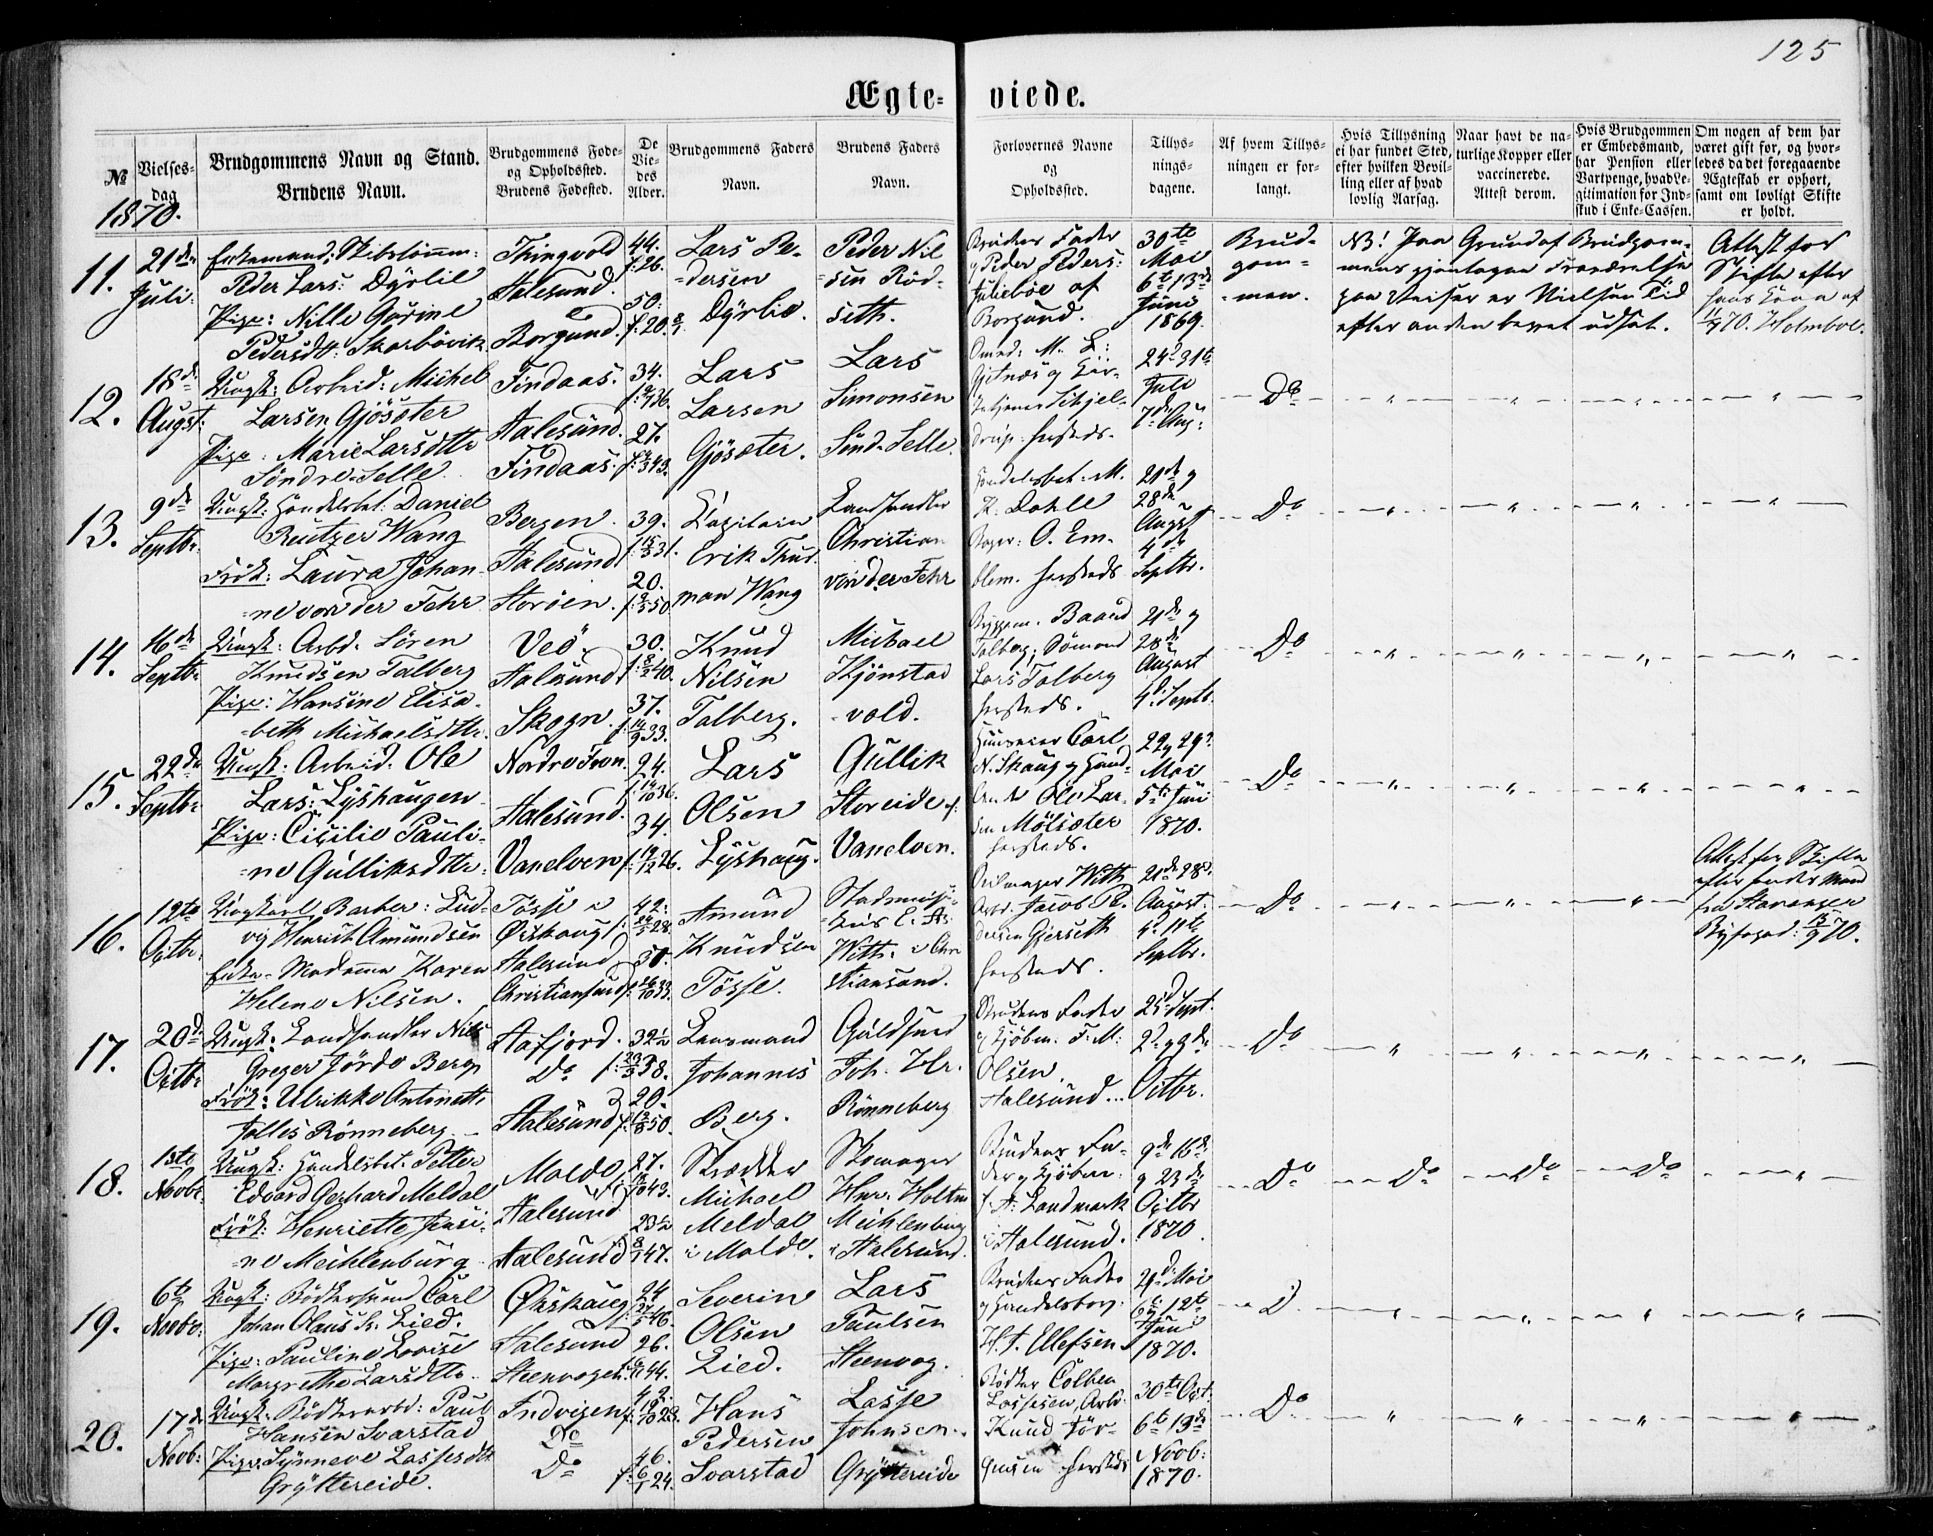 125
Ægte- viede.
№
Vielses-
dag
Brudgommens Navn og Stand.
Brudens Navn.
Brudgommens Føde-
og Opholdssted.
Brudens Fødested.
De
Vie-
des
Alder.
Brudgommens Faders
Navn.
Brudens Faders
Navn.
Forlovernes Navne
og
Opholdssted.
Tillys-
nings-
dagene.
Af hvem Tillys-
ningen er for-
langt.
Hvis Tillysning
ei har fundet Sted,
efter hvilken Bevil-
ling eller af hvad
lovlig Aarsag.
Naar havt de na-
turlige Kopper eller
vaccinerede.
Attest derom.
Hvis Brudgommen
er Embedsmand,
har Pension eller
Vartpenge, hvad Le-
gitimation for Ind-
skud i Enke-Cassen.
Om nogen af dem har
været gift før, og hvor-
ledes da det foregaaende
Ægteskab er ophørt,
samt om lovligt Skifte
er holdt.
1870.
11.
21de
Juli:
Enkemand: Skibstömm:
Peder Lars: Dyrlil
Pige: Nille Gurine
Pedersdt: Skarbövik
Thingvold
Aalesund.
Borgund.
44.
f: 26.
50.
Lars Pe-
-dersen
Peder Nil
-sen Röd-
seth.
Brudens Fader
og Peder Peders:
af
Borgund.
30te
Mai
6te 13de
Juni
1869.
Brud-
gom-
-men.
NB! Paa Grund af Brudgom-
mens gjentagne Fraværelse
paa Reiser er Vielsen Tid
efter anden bevet udsat.
Attest for
Skifte efter
hans Kone af
11/7 70. Holmboe.
12.
18de
Augst:
Ungk: Arbeid: Michel
Larsen Gjösæter
Pige: Marie Larsdtr
Söndre-Selle.
Findaas.
Aalesund.
Findaas.
34.
27.
Lars
Larsen
Gjösæter.
Lars
Simonsen
Sönd. Selle.
24de 31te
Juli
7de Aug:
Do
13.
9de
Septbr.
Ungk: Handelsbet: Daniel
Reutzer Wang
Frök: Laura Johan-
-ne von der Fehr
Bergen.
Aalesund
Storöen.
39.
f: 15/3 31.
20.
Capitain
Erik Thur-
man Wang
Landhandler
Christian
von der Fehr
Handelsbet: M.
K. Dahle
Bager: O. Em-
blem. hersteds
21de og
28de
August
4de
Septbr.
Do
14.
16de
Septbr
Ungk: Arbd. Sören
Knudsen Talberg
Pige: Hansine Elisa-
-beth Michaelsdtr.
Veö
Aalesund
Skogn.
30.
37.
f: 14/9 33.
Knud
Nilsen
Talberg.
Michael
Kjönstad
-vold.
Baard
Talberg; Sömand
Lars Talberg
hersteds.
21de og
28de
August
4de Septb.
Do
15.
22de
Septbr
Ungk: Arbeid. Ole
Lars: Lyshaugen
Pige: Cicilie Pauli-
-ne Gulliksdtr:
Nordre Fron.
Aalesund.
Vanelven
24.
34.
f: 19/12 26.
Lars
Olsen
Lyshaug.
Gullik
Storeide
Vanelven.
Carl
N. Skaug og Hand-
Ole Lar-
sen Mölsæter
hersteds.
22 og 29de
Mai
5te Juni
1870.
Do
16.
12te
Octbr:
Ungkarl Barber: Lud-
vig Henrich Amundsen
Enke-Madamme Karen
Helene Nilsen.
Tösse i
Örskoug
Aalesund
Christiansund
42.
50.
Amund
Knudsen
Tösse.
Stadsmusi-
Witth: i Chri
stiansund.
Seilmager Witth
Arbr. Jacob Pe-
dersen Gjerseth
hersteds.
21de 28de
August.
4de 11te
Septbr.
Do
Attest for Skifte
efter hendes Mand
fra Stavanger
Byfoged: 15/9 70.
17.
20de
Octbr
Ungk: Landhandler Nils
Greger Jörde Berg
Frök: Ulrikke Antonette
Jolles Rönneberg
Aafjord.
Do
Aalesund
32½
f: 23/3 38.
20.
f: 12/8 50.
Lensmand
Johannes
Berg.
Guldsmed
Joh. Hr.
Rönneberg
Brudens Fader
og Kjöbm. F. M.
Olsen
Aalesund.
25de Sept.
2de og 9de
Octbr.
Do
18.
1ste
Novbr.
Ungk: Handelsbet. Petter
Edvard Gerhard Meldal
Frök: Henriette Jensi-
-ne Meihlenburg
Molde
Aalesund
Aalesund
27.
23½
f: 8/1 47.
Skrædder
Michael
Meldal
i Molde.
Skomager
Hnr. Holtm
Meihlenburg
i Aalesund.
Brudens Fa-
der og Kjöbm.
Landmark
i Aalesund.
9de 16de
og 23de
Octbr
1870.
Do
Do
Do
Do
19.
6te
Novbr:
Ungk: Bödkersvend Carl
Johan Olaus S. Lied.
Pige: Pauline Lovise
Margrethe Larsdtr.
Örskoug
Aalesund
Steenvaagen
24
26.
Severin
Olsen
Lied.
Lars
Paulsen
Steenvag.
Brudens Fader
og Handelsborg:
H. J. Ellefsen
21de Mai
6te 12te
Juni
1870.
Do
20.
17de
Novb:
Ungk: Bödkerarbd: Paul
Hansen Svarstad
Pige: Synneve Lassesdt
Gryttereide.
Indvigen
Do
Do
42.
f: 19/10 28.
46.
f: 6/1 24.
Hans
Pedersen
Svarstad
Lasse
Johnsen.
Gryttereide
Bödker Colben
Lassesen, Arbd:
Knud Jör-
gensen hersteds
30te Oct.
6te 13de
Novb:
1870.
Do